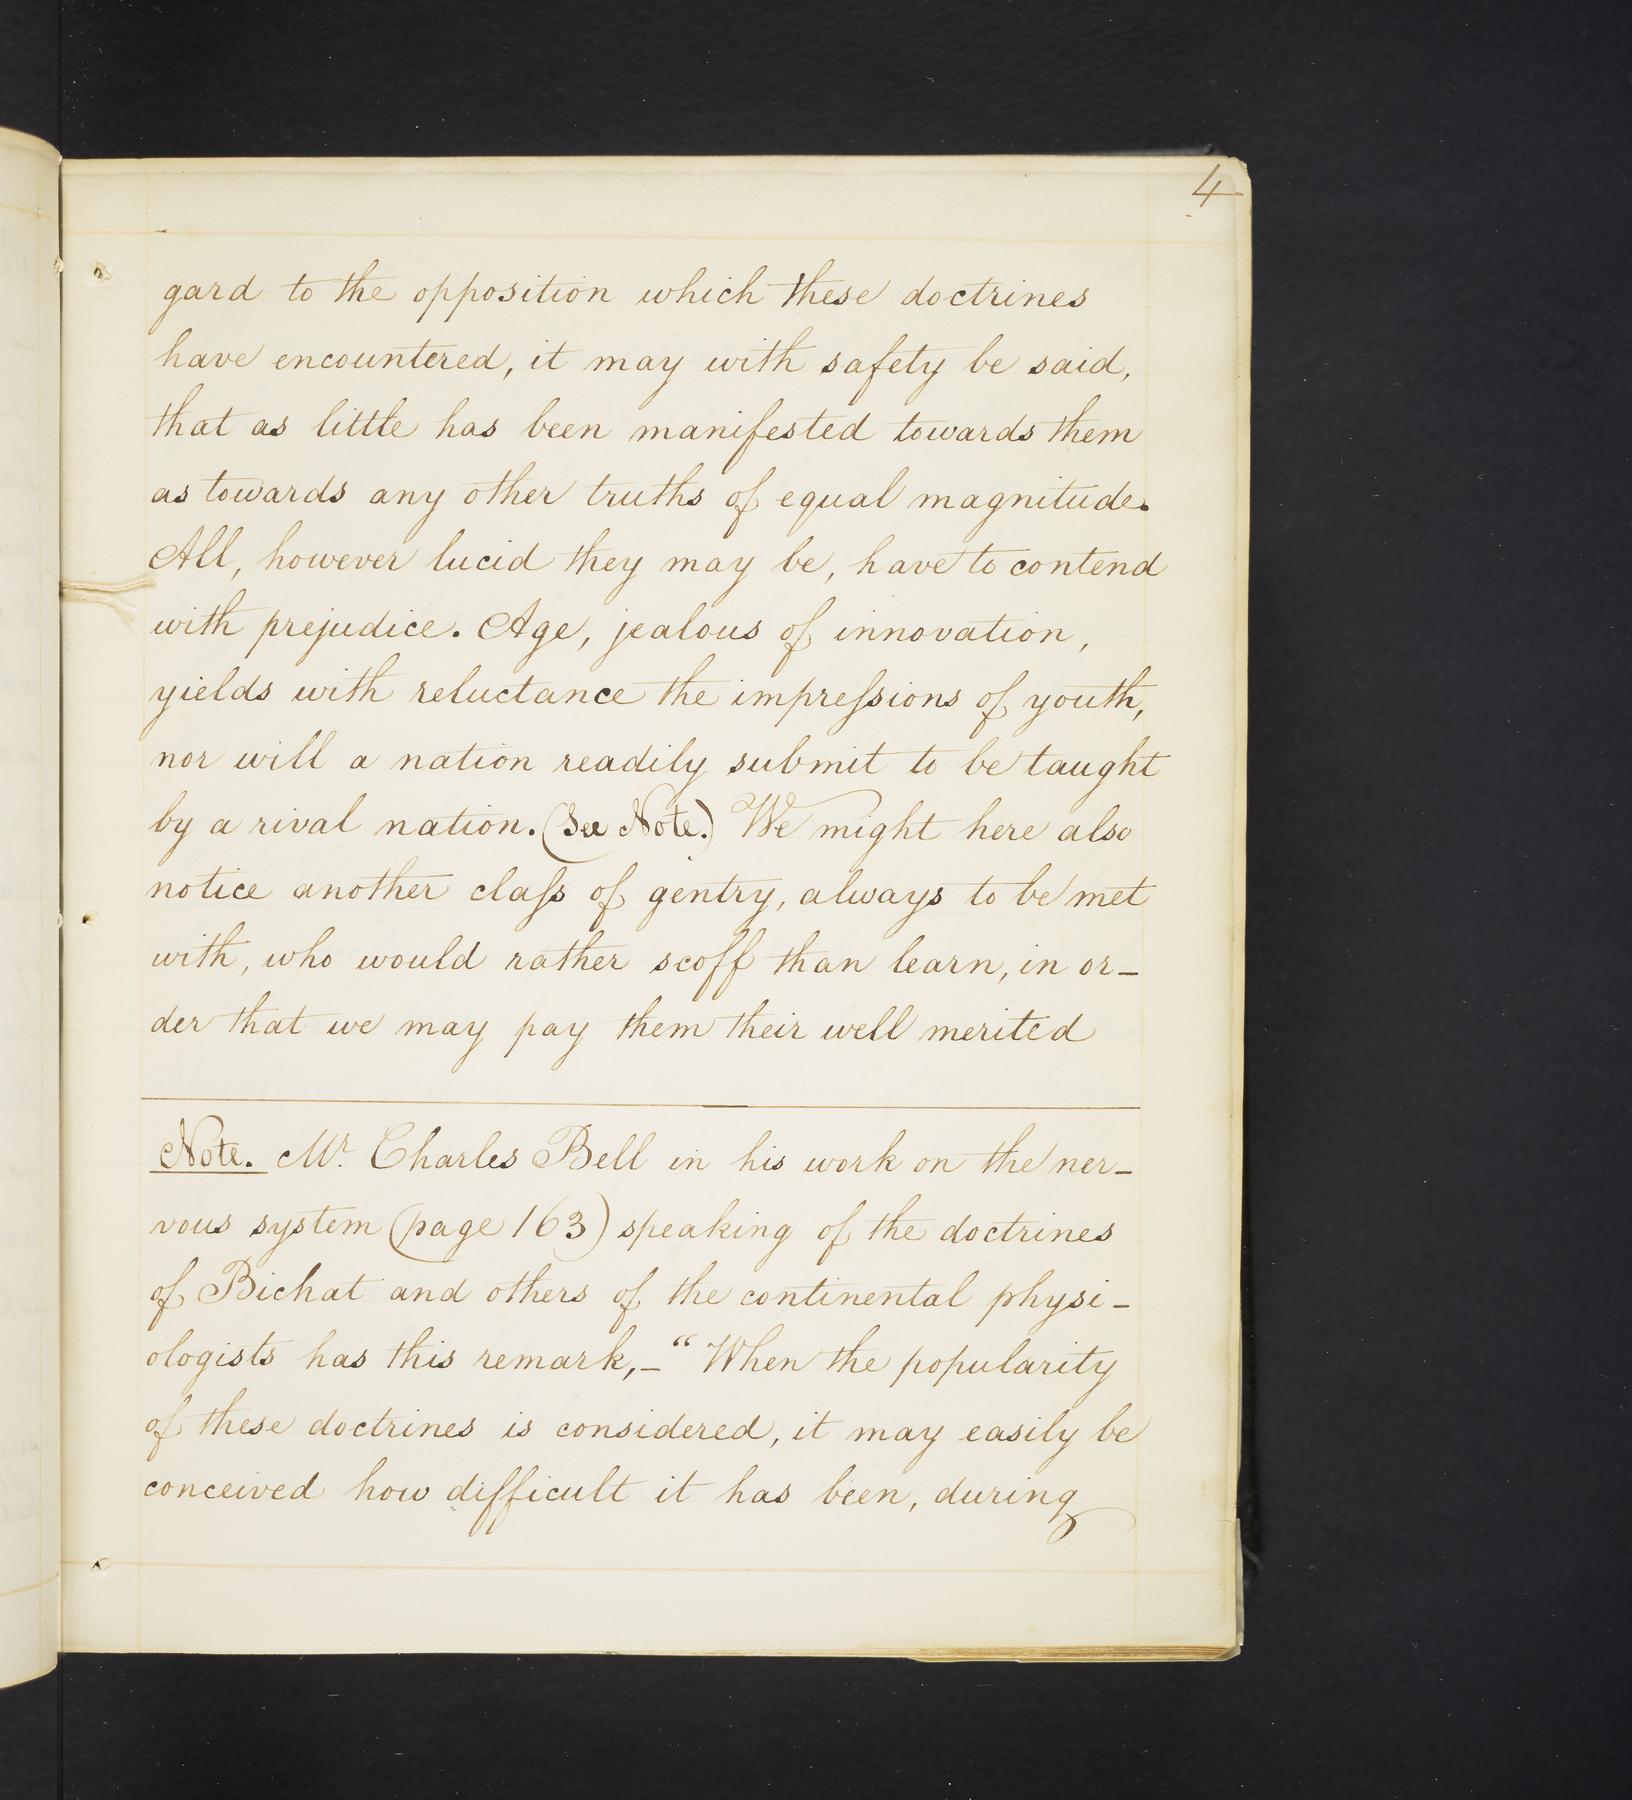 4
gard to the opposition which these doctrines
have encountered, it may with safety be said,
that as little has been manifested towards them
as towards any other truths of equal magnitude.
All, however lucid they may be, have to contend
with prejudice. Age, jealous of innovation,
yields with reluctance the impreſsions of youth,
nor will a nation readily submit to be taught
by a rival nation. (See Note.) We might here also
notice another claſs of gentry, always to be met
with, who would rather scoff than learn, in or-
der that we may pay them their well merited
Note. Mr. Charles Bell in his work on the ner-
vous system (page 163) speaking of the doctrines
of Bichat and others of the continental physi-
ologists has this remark,- “When the popularity
of these doctrines is considered, it may easily be
conceived how difficult it has been, during